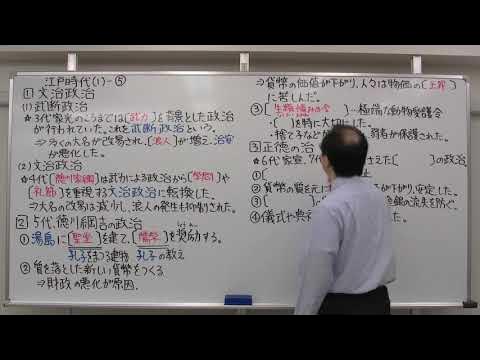 江戸時代(1)-⑤
1 文治政治
(1)武断政治
★3代家光のころまでは[武力]を背景とした政治
が行われていた。これを武断政治という。
⇒多くの大名が改易され、[浪人]が増え、治安
が悪化した。
(2)文治政治
★4代[徳川家綱]は武力による政治から[学問]
や[礼節]を重視する文治政治に転換した。
⇒大名の改易は減少し、浪人の発生も抑制された。
2 5代、徳川綱吉の政治
①湯島に[聖堂]を建て、[儒学]を奨励する。
孔子をまつる建物 孔子の教え
②質を落とした新しい貨幣をつくる
⇒財政の悪化が原因。
⇒貨幣の価値が下がり、人々は物価の[上昇]
に苦しんだ。
③[生類憐みの令]…極端な動物愛護令
・[ ]を特に大切にした。
・捨て子など 弱者が保護された。
3 正徳の治
★6代家宣、7代 さえた[ ]の政治
①[
②貨幣の質を元に が下がり、安定した。
③ 金銀の流失を防ぐ。
④儀式や典